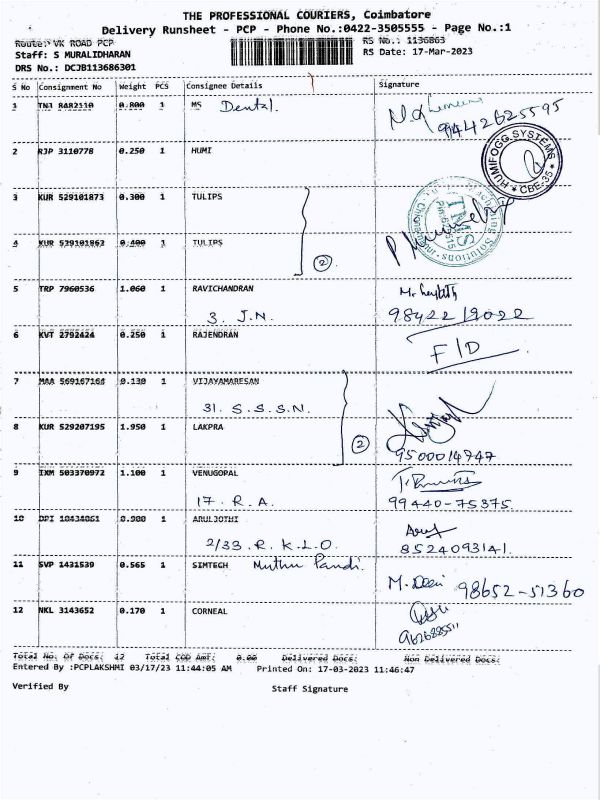 THE PROFESSIONAL COURIERS, Coimbatore
Delivery Runsheet - PCP - Phone No.:0422-3505555 - Page No.:1
Route: VK ROAD PCP
RS No.: 1136863
Staff: S MURALIDHARAN
RS Date: 17-Mar-2023
DRS No.: DCJB113686301
S No Consignment No Weight PCS Consignee Details Signature
1 TNJ 8482110 0.800 1 MS Dental.
94426 25595
2 RJP 3110778 0.250 1 HUMI
HUMIFOGG SYSTEMS
CBE-35
3 KUR 529101873 0.300 1 TULIPS
4 KUR 529101863 0.400 1 TULIPS
TMS
2
5 TRP 7960536 1.060 1 RAVICHANDRAN
3. J.N. 98422 19022
6 KVT 2792424 0.250 1 RAJENDRAN
F/D
7 MAA 569167164 0.130 1 VIJAYAMARESAN
31. S.S.S.N.
8 KUR 529207195 1.950 1 LAKPRA
2
9500014747
9 IXM 503370972 1.100 1 VENUGOPAL
17. R.A. 99440-75375
10 DPI 10434061 0.900 1 ARULJOTHI
2/33. R. K.L.O. 8524093141.
11 SVP 1431539 0.565 1 SIMTECH Muthu Pandi.
M. Devi 98652-51360
12 NKL 3143652 0.170 1 CORNEAL
Total No. Of Docs: 12 Total COD Amt: 0.00 Delivered Docs: Non Delivered Docs:
Entered By :PCPLAKSHMI 03/17/23 11:44:05 AM Printed On: 17-03-2023 11:46:47
Verified By Staff Signature